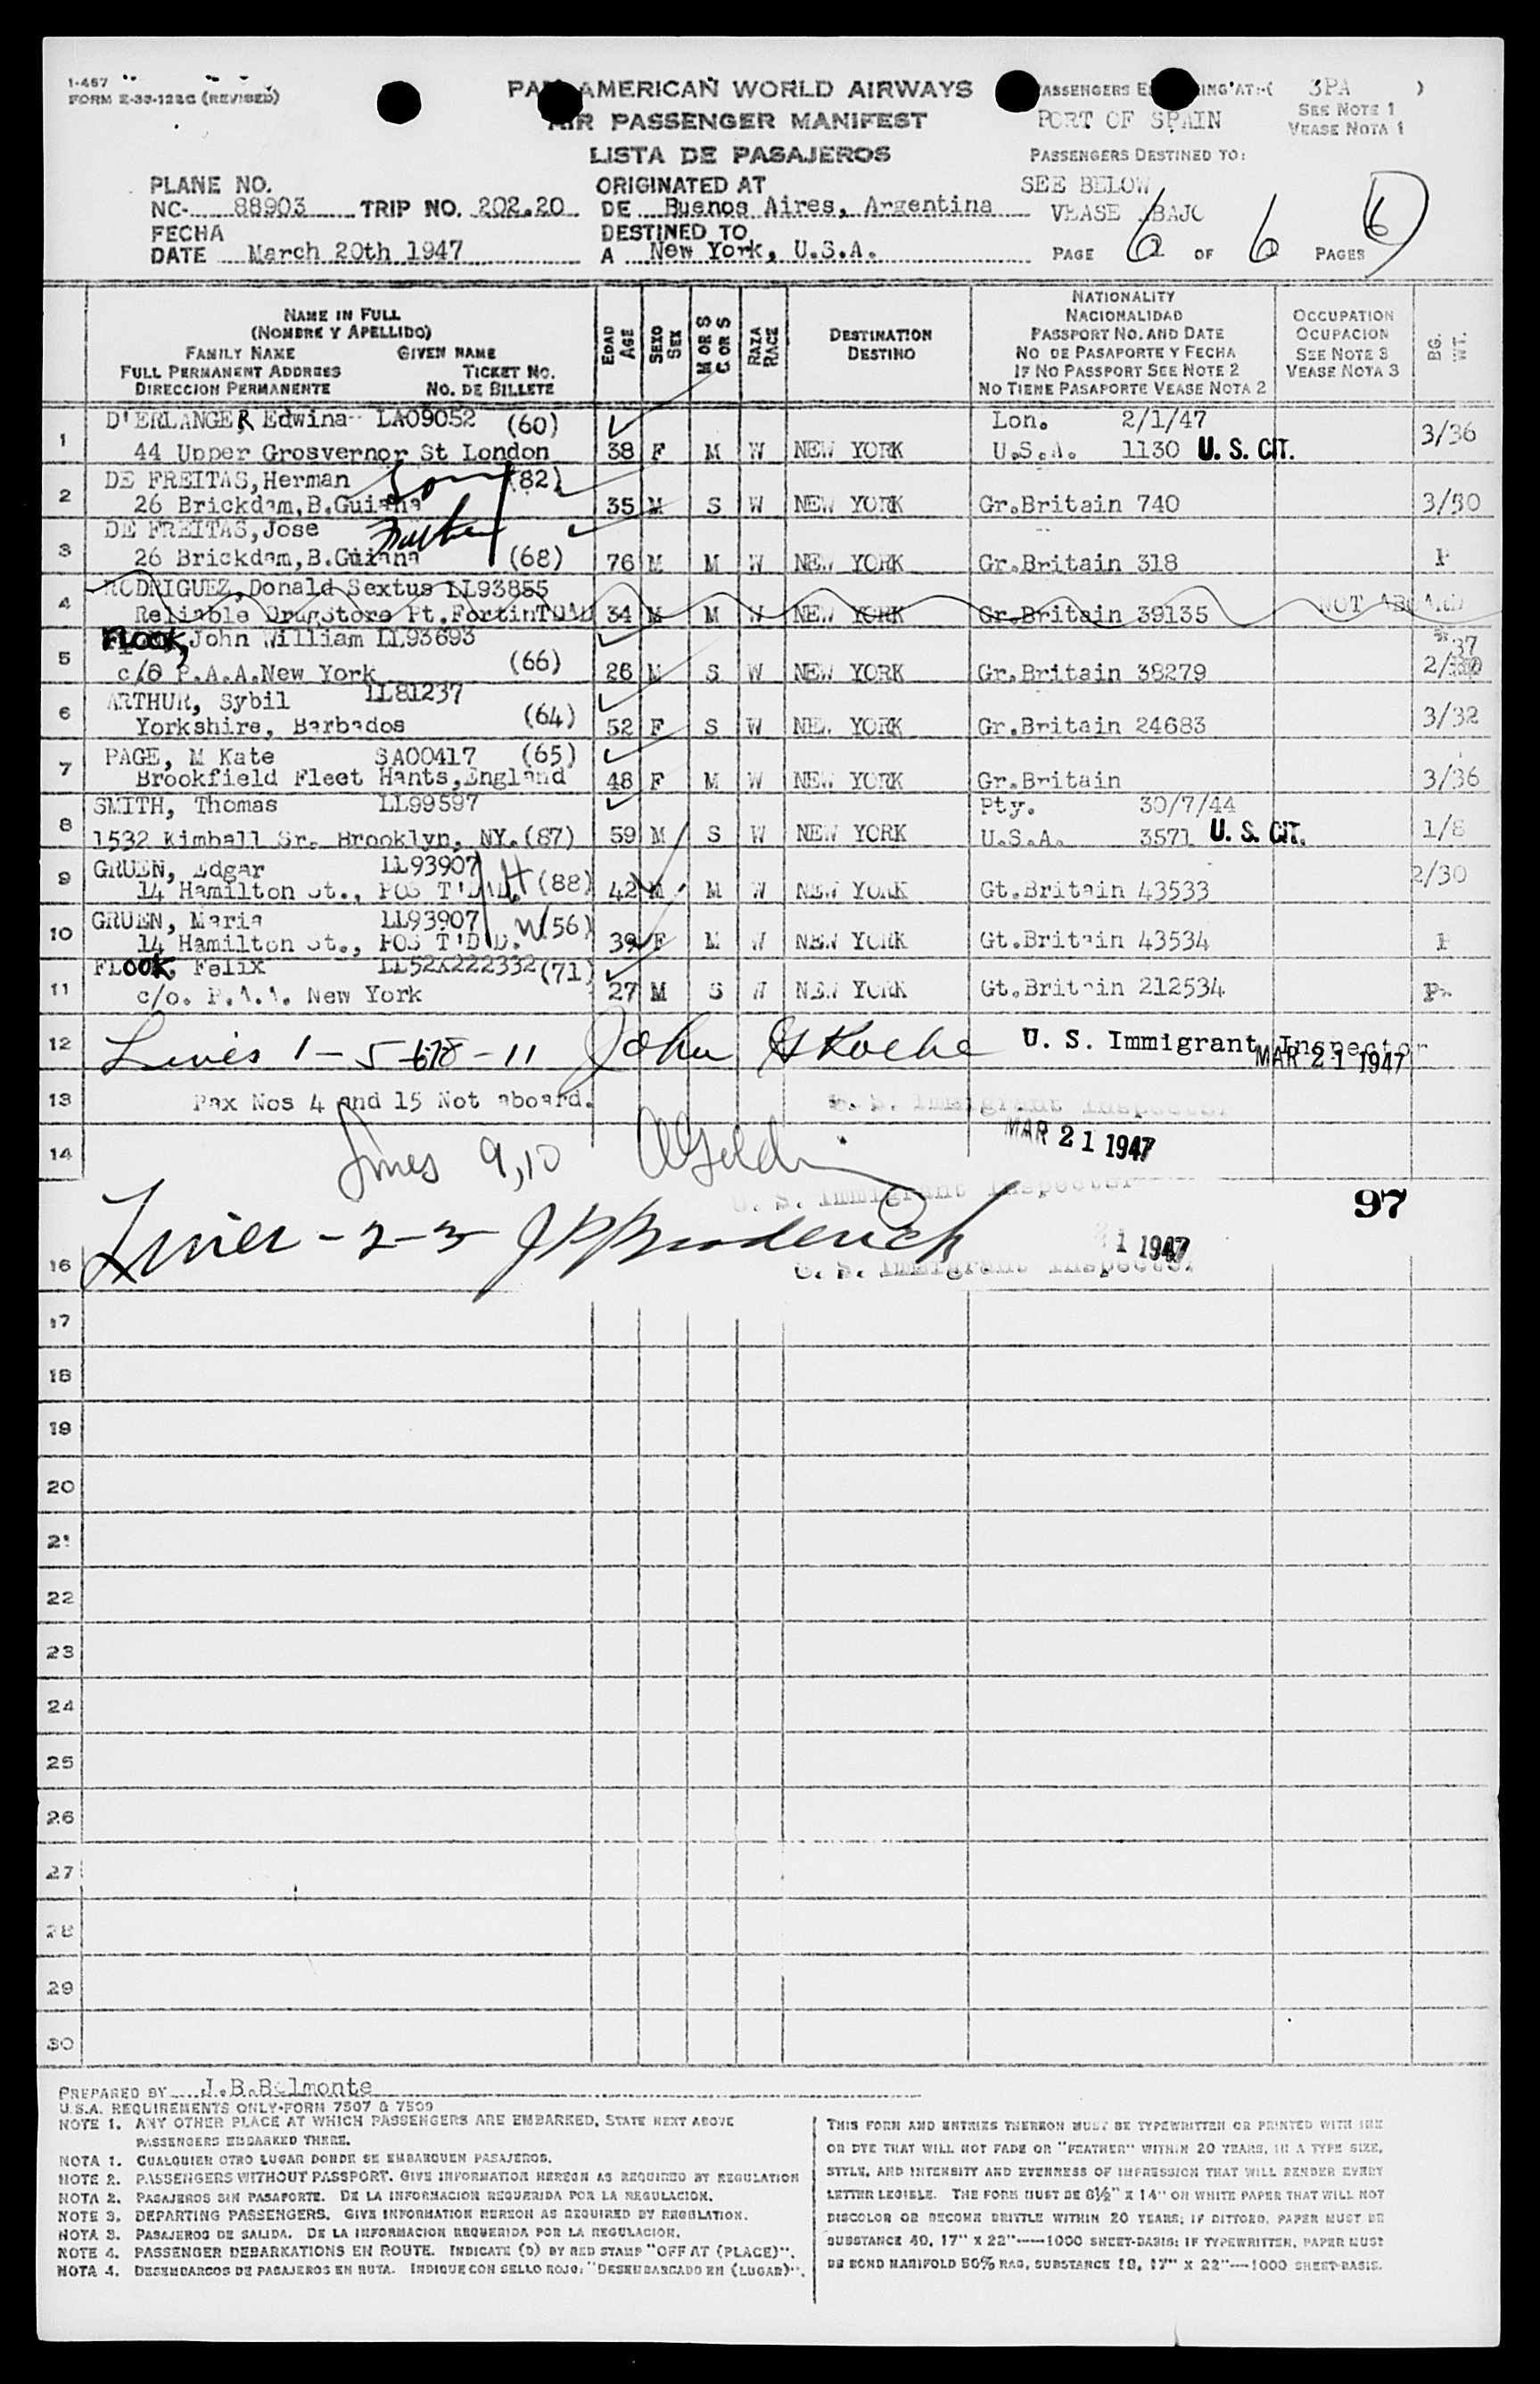 1-467
FORM E-33-122G (REVISED)
PAN AMERICAN WORLD AIRWAYS
AIR PASSENGER MANIFEST
LISTA DE PASAJEROS
3PA )
SEE NOTE 1
VEASE NOTA 1
PORT OF SPAIN
PASSENGERS DESTINED TO:
SEE BELOW
VEASE ABAJO
PLANE NO.
NC- 88903 TRIP NO. 202.20
FECHA
DATE March 20th 1947
ORIGINATED AT
DE Buenos Aires, Argentina
DESTINED TO
A New York, U.S.A.
PAGE 6 OF 6 PAGES
6
NAME IN FULL
(NOMBRE Y APELLIDO)
FAMILY NAME GIVEN NAME
FULL PERMANENT ADDRESS TICKET NO.
DIRECCION PERMANENTE NO. DE BILLETE
EDAD AGE
SEXO SEX
M OR S C OR S
RAZA RACE
DESTINATION
DESTINO
NATIONALITY
NACIONALIDAD
PASSPORT NO. AND DATE
NO DE PASAPORTE Y FECHA
IF NO PASSPORT SEE NOTE 2
NO TIENE PASAPORTE VEASE NOTA 2
OCCUPATION
OCUPACION
SEE NOTE 3
VEASE NOTA 3
BG. WT.
1 D'ERLANGER Edwina LA09052 (60) Lon. 2/1/47
44 Upper Grosvernor St London 38 F M W NEW YORK U.S.A. 1130 U. S. CIT. 3/36
2 DE FREITAS, Herman Son (82)
26 Brickdam, B.Guiana 35 M S W NEW YORK Gr.Britain 740 3/50
3 DE FREITAS, Jose Father
26 Brickdam, B.Guiana (68) 76 M M W NEW YORK Gr.Britain 318 P
4 RODRIGUEZ, Donald Sextus LL93855 NOT ABOARD
Reliable Drugstore Pt.Fortin TDAD 34 M M W NEW YORK Gr.Britain 39135
5 FLOOK, John William LL93693 37
c/o P.A.A.New York (66) 26 M S W NEW YORK Gr.Britain 38279
6 ARTHUR, Sybil LL81237
Yorkshire, Barbados (64) 52 F S W NEW YORK Gr.Britain 24683 3/32
7 PAGE, M Kate SA00417 (65)
Brookfield Fleet Hants, England 48 F M W NEW YORK Gr.Britain 3/36
8 SMITH, Thomas LL99597 Pty. 30/7/44
1532 Kimball Sr. Brooklyn, NY. (87) 59 M S W NEW YORK U.S.A. 3571 U. S. CIT. 1/8
9 GRUEN, Edgar LL93907 H (88) 2/30
14 Hamilton St., POS T'DAD. 42 M M W NEW YORK Gt.Britain 43533
10 GRUEN, Maria LL93907 W (56)
14 Hamilton St., POS T'DAD. 39 F M W NEW YORK Gt.Britain 43534 P
11 FLOOK, Felix LL52K222332 (71)
c/o. P.A.A. New York 27 M S W NEW YORK Gt.Britain 212534 P
12 Lines 1 - 5-678 - 11 John U. S. Immigrant Inspector
MAR 21 1947
13 Pax Nos 4 and 15 Not aboard. U. S. Immigrant Inspector
MAR 21 1947
14 Lines 9,10
U. S. Immigrant Inspector
97
Lines - 2-3 Broderick
21 1947
16 U. S. Immigrant Inspector
17
18
19
20
21
22
23
24
25
26
27
28
29
30
PREPARED BY J.B.Belmonte
U.S.A. REQUIREMENTS ONLY-FORM 7507 & 7509
NOTE 1. ANY OTHER PLACE AT WHICH PASSENGERS ARE EMBARKED, STATE NEXT ABOVE
PASSENGERS EMBARKED THERE.
NOTA 1. CUALQUIER OTRO LUGAR DONDE SE EMBARQUEN PASAJEROS.
NOTE 2. PASSENGERS WITHOUT PASSPORT. GIVE INFORMATION HEREON AS REQUIRED BY REGULATION
NOTA 2. PASAJEROS SIN PASAPORTE. DE LA INFORMACION REQUERIDA POR LA REGULACION.
NOTE 3. DEPARTING PASSENGERS. GIVE INFORMATION HEREON AS REQUIRED BY REGULATION.
NOTA 3. PASAJEROS DE SALIDA. DE LA INFORMACION REQUERIDA POR LA REGULACION.
NOTE 4. PASSENGER DEBARKATIONS EN ROUTE. INDICATE (D) BY RED STAMP "OFF AT (PLACE)".
NOTA 4. DESEMBARCOS DE PASAJEROS EN RUTA. INDIQUE CON SELLO ROJO: "DESEMBARCADO EN (LUGAR)".
THIS FORM AND ENTRIES THEREON MUST BE TYPEWRITTEN OR PRINTED WITH INK
OR DYE THAT WILL NOT FADE OR "FEATHER" WITHIN 20 YEARS, IN A TYPE SIZE,
STYLE, AND INTENSITY AND EVENNESS OF IMPRESSION THAT WILL RENDER EVERY
LETTER LEGIBLE. THE FORM MUST BE 8½" X 14" ON WHITE PAPER THAT WILL NOT
DISCOLOR OR BECOME BRITTLE WITHIN 20 YEARS; IF DITTOED, PAPER MUST BE
SUBSTANCE 40, 17" X 22"----1000 SHEET-BASIS; IF TYPEWRITTEN, PAPER MUST
BE BOND MANIFOLD 50% RAG, SUBSTANCE 18, 17" X 22"---1000 SHEET-BASIS.